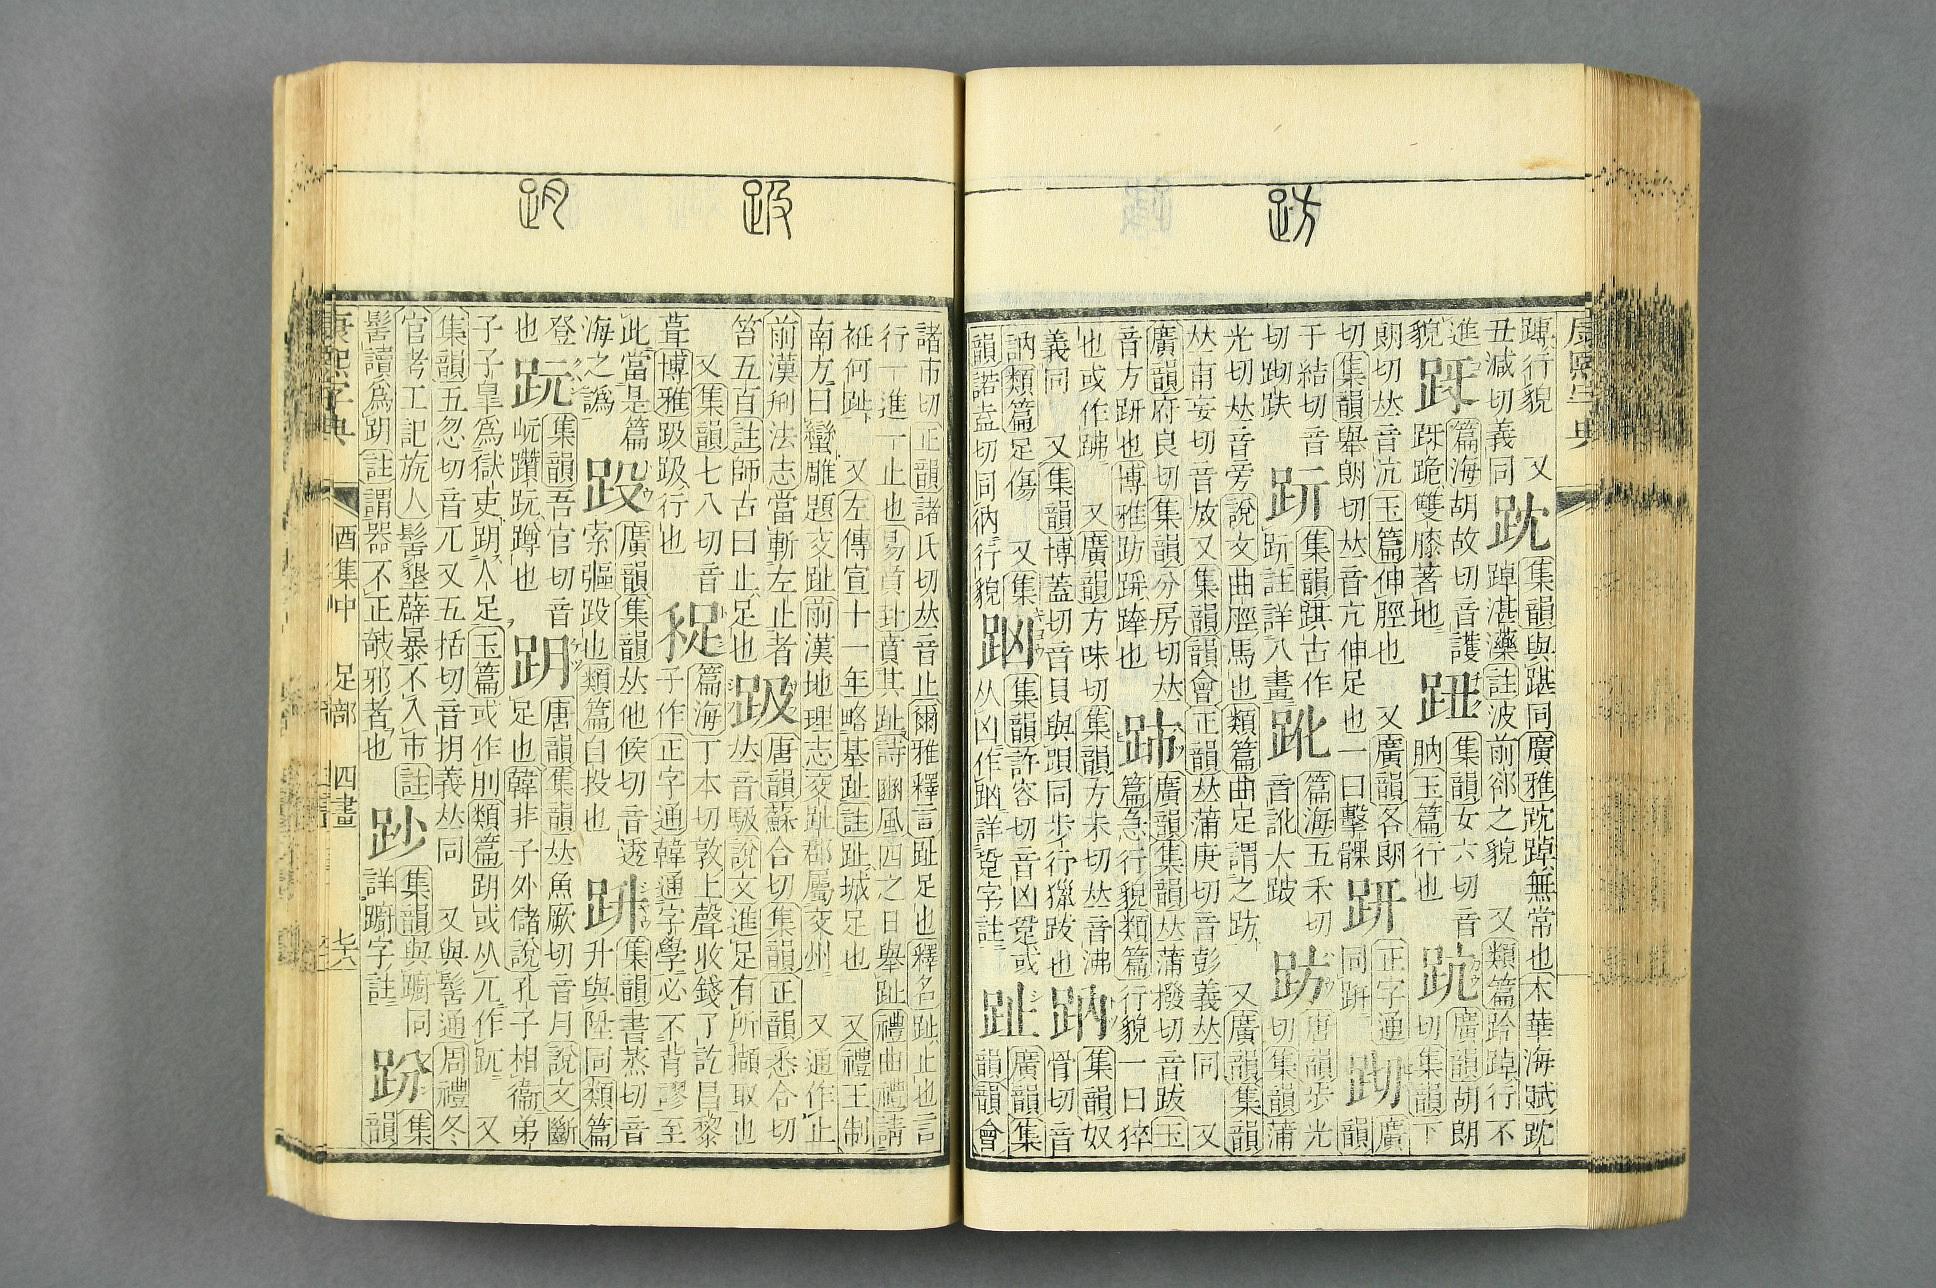 踔行貌　又
丑減切義同
集韻與踸同廣雅踔無常也木華海賦
踔湛濼註波前郤之貌　又類篇跉踔行不
進
貌
篇海胡故切音護
跪雙膝著地
集韻女六切音
肭玉篇行也
廣韻胡朗
切集韻下
朗切𠀤音沆玉篇伸脛也　又廣韻各朗
切集韻舉朗切𠀤音亢伸足也一曰擊髁
趼
正字通
同趼
廣
韻
于結切音
切跌
集韻踑古作
註詳八畫
篇海五禾切
音訛大跛
趽
唐韻步光
切集韻蒲
光切𠀤音旁說文曲脛馬也類篇曲足謂之趽　又廣韻集韻
𠀤甫妄切音放又集韻韻會正韻𠀤蒲庚切音彭義𠀤同　又
廣韻府良切集韻分房切𠀤
音方趼也博雅趽踤也
廣韻集韻𠀤蒲撥切音跋玉
篇急行貌類篇行貌一曰猝
也或作　又廣韻方味切集韻方未切𠀤音沸
義同　又集韻博蓋切音貝與同步行獵跋也
集韻奴
骨切音
訥類篇足傷　又集
韻諾盍切同行貌
集韻許容切音凶跫或
从凶作詳跫字註
趾
廣韻集
韻韻會
諸市切正韻諸氏切𠀤音止爾雅釋言趾足也釋名趾止也言
行一進一止也易首卦賁其趾詩豳風四之日舉趾禮曲禮請
衽何趾　又左傳宣十一年略基趾註趾城足也　又禮王制
南方曰蠻雕題交趾前漢地理志交趾郡屬交州　又通作止
前漢刑法志當斬左止者
笞五百註師古曰止足也
趿
唐韻蘇合切集韻正韻悉合切
𠀤音馺說文進足有所擷取也
又集韻七八切音
葺博雅趿趿行也
篇海丁本切敦上聲收錢了訖昌黎
子作正字通韓通字學必不背謬至
此當是篇
海之譌
廣韻集韻𠀤他候切音透
索彄也類篇自投也
集韻書蒸切音
升與陞同類篇
登
也
集韻吾官切音
岏躦蹲也
跀
唐韻集韻𠀤魚厥切音月說文斷
足也韓非子外儲說孔子相衞弟
子子皐爲獄吏跀人足玉篇或作刖類篇跀或从兀作䟚　又
集韻五忽切音兀又五括切音抈義𠀤同　又與髺通周禮冬
官考工記㼚人髺墾薜暴不入市註
髺讀爲跀註謂器不正攲邪者也
集韻與同
詳字註
集
韻
康熙字典
酉集中　足部　四畫　七六
康熙字典
趽
趿
跀